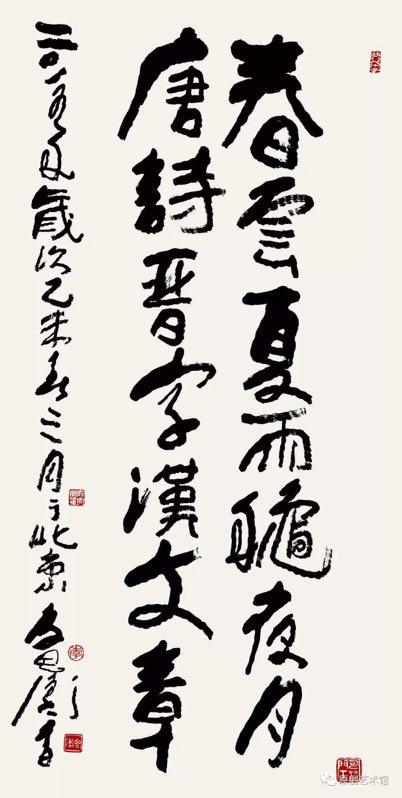 春雲夏雨龝夜月
唐詩晋字漢文章
二〇一五年歲次乙未春三月于北京
原创艺术馆